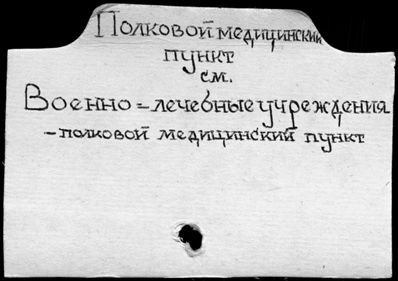 Полковой медицинский
пункт
см.
Военно-лечебные учреждения
- полковой медицинский пункт